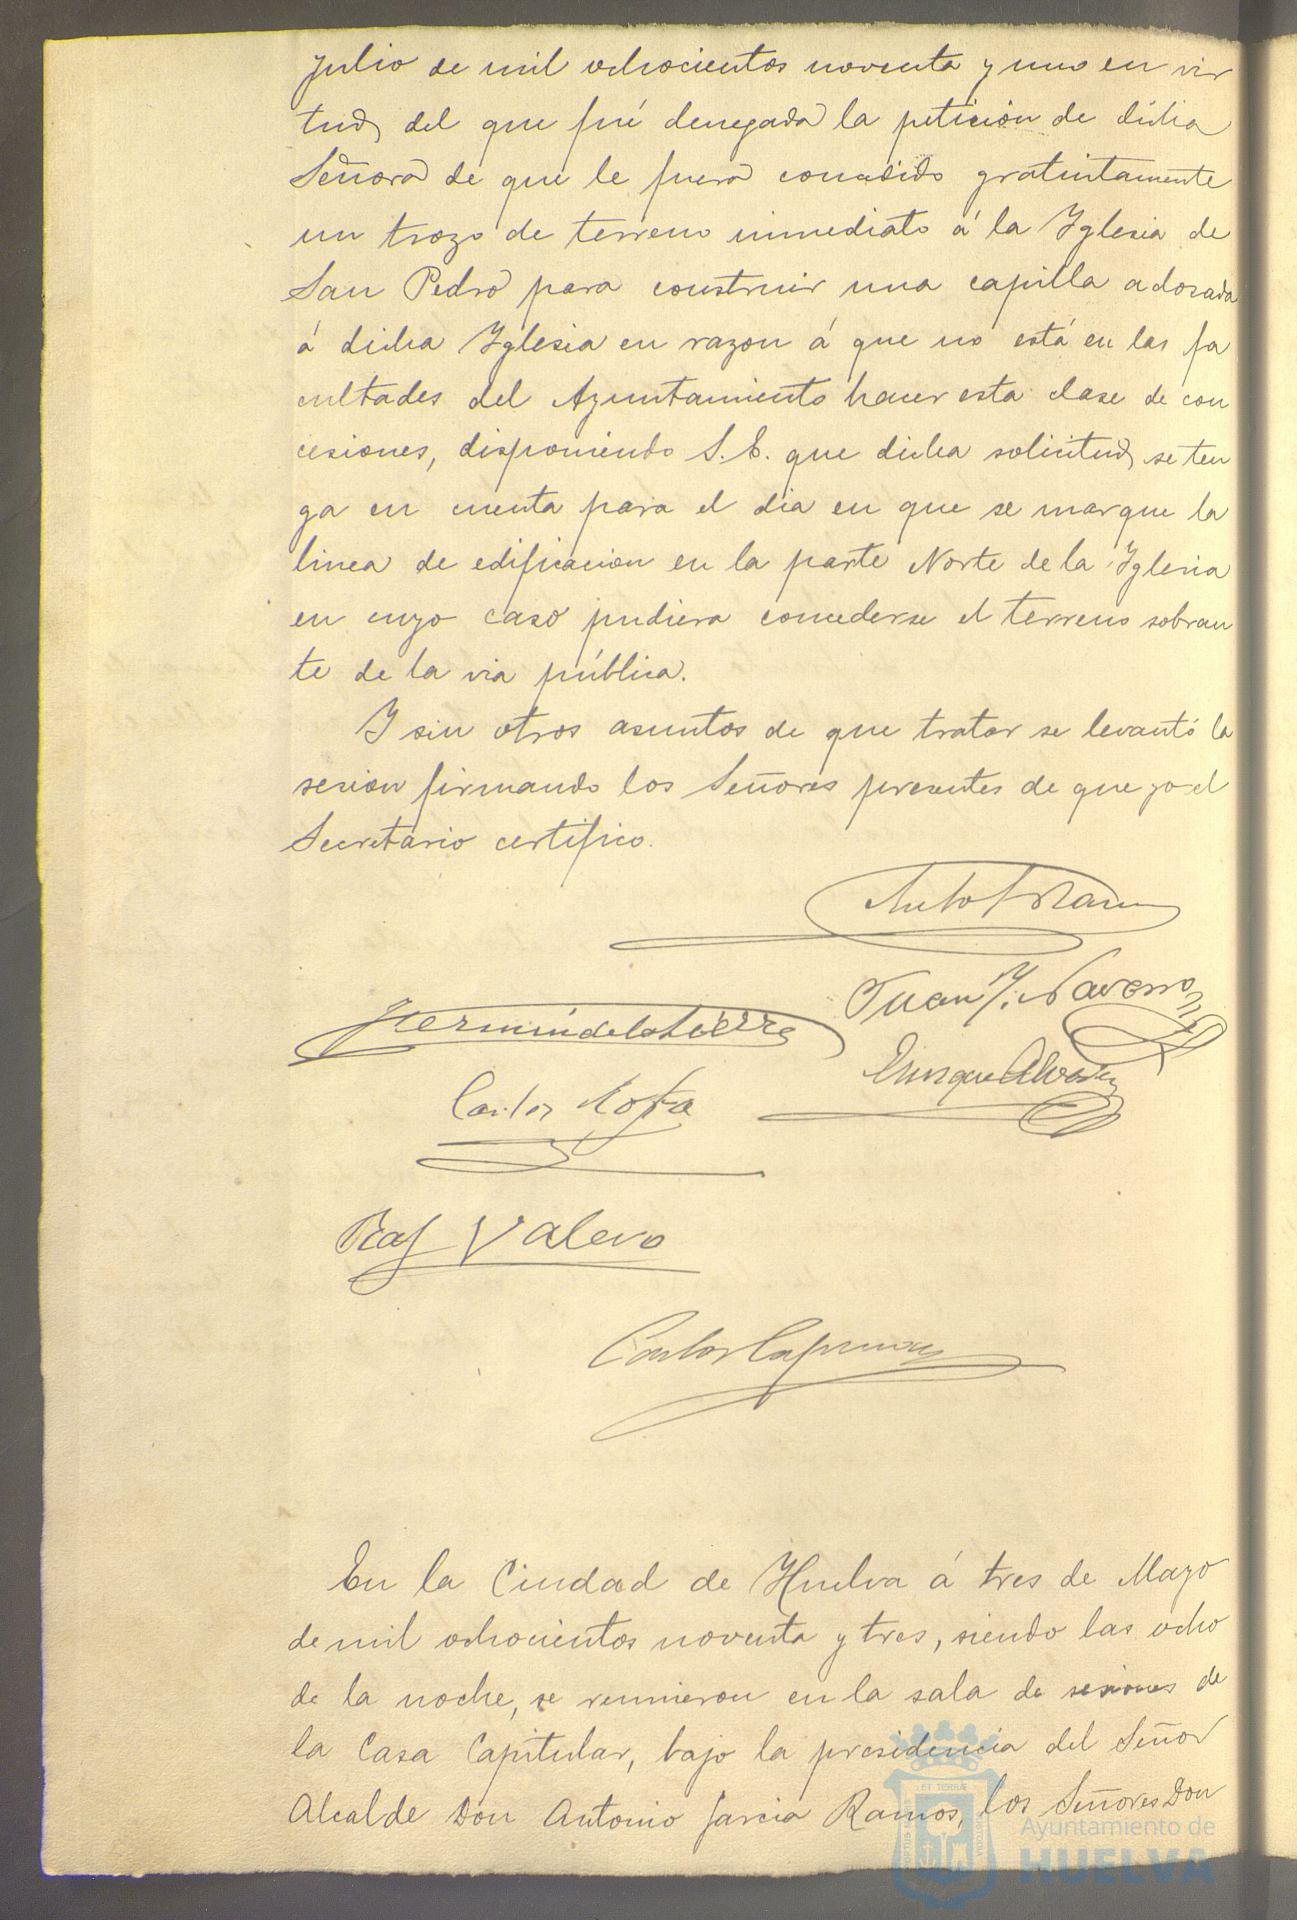 Julio de mil ochocientos noventa y uno en vir
tud del que fué denegada la petición de dicha
Señora de que le fuera concedido gratuitamente
un trozo de terreno inmediato á la Yglesia de
San Pedro para construir una capilla adosada
á dicha Yglesia en razon á que no está en las fa
cultades del Ayuntamiento hacer esta clase de con
cesiones, disponiendo S. E. que dicha solicitud se ten
ga en cuenta para el dia en que se marque la
linea de edificacion en la parte Norte de la Yglesia
en cuyo caso pudiera concederse el terreno sobran
te de la via pública.
Y sin otros asuntos de que tratar se levantó la
sesion firmando los Señores presentes de que yo el
Secretario certifico.
Juan Y. Navarro
Fermín de la Sierra
Enrique Alvarez
Carlos
Raf Valero
Carlos
En la Ciudad de Huelva á tres de Mayo
de mil ochocientos noventa y tres, siendo las ocho
de la noche, se reunieron en la sala de sesiones de
la Casa Capitular, bajo la presidencia del Señor
Alcalde Don Antonio Garcia Ramos, los Señores Don
ET TERRÆ
Ayuntamiento de
HUELVA